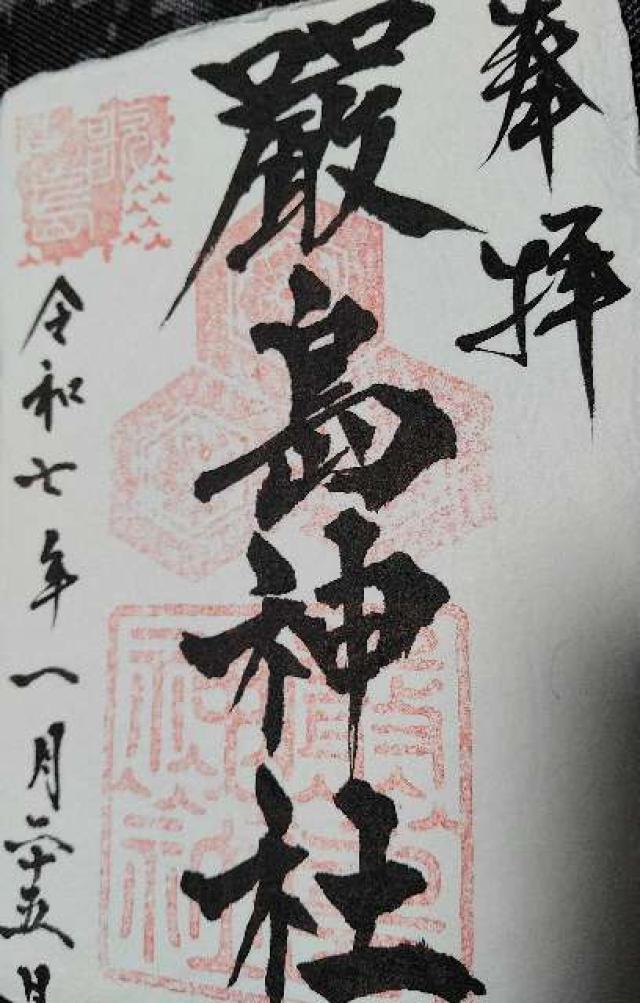 奉拝
嚴島神社
令和七年一月二十五日